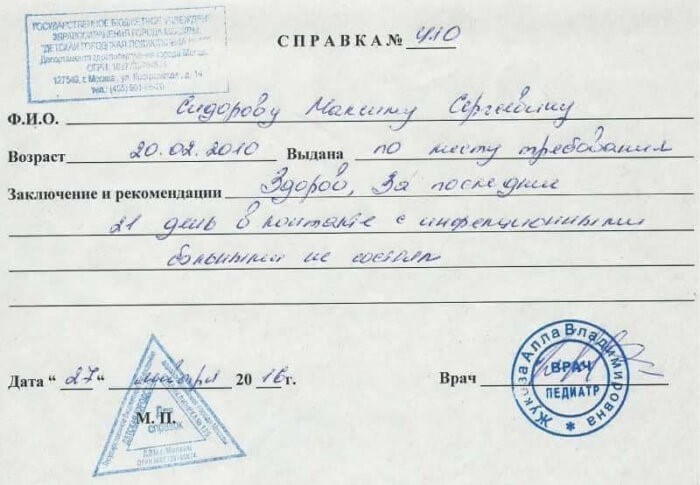 ГОСУДАРСТВЕННОЕ БЮДЖЕТНОЕ УЧРЕЖДЕН
ЗДРАВООХРАНЕНИЯ ГОРОДА МОСКВЫ
"ДЕТСКАЯ ГОРОДСКАЯ ПОЛИКЛИНИКА
Департамента здравоохранения города Москвы
127549, г. Москва, ул.
тел.: (495)
СПРАВКА № 410
Ф.И.О. Сидорову Максиму Сергеевичу
Возраст 20.02.2010 Выдана по месту требования
Заключение и рекомендации Здоров, За последние
21 день в контакте с инфекционными
больными не состоял
Дата "27" января 2016г.
Врач
М. П.
Для справок
ВРАЧ
ПЕДИАТР
Алла Владимировна